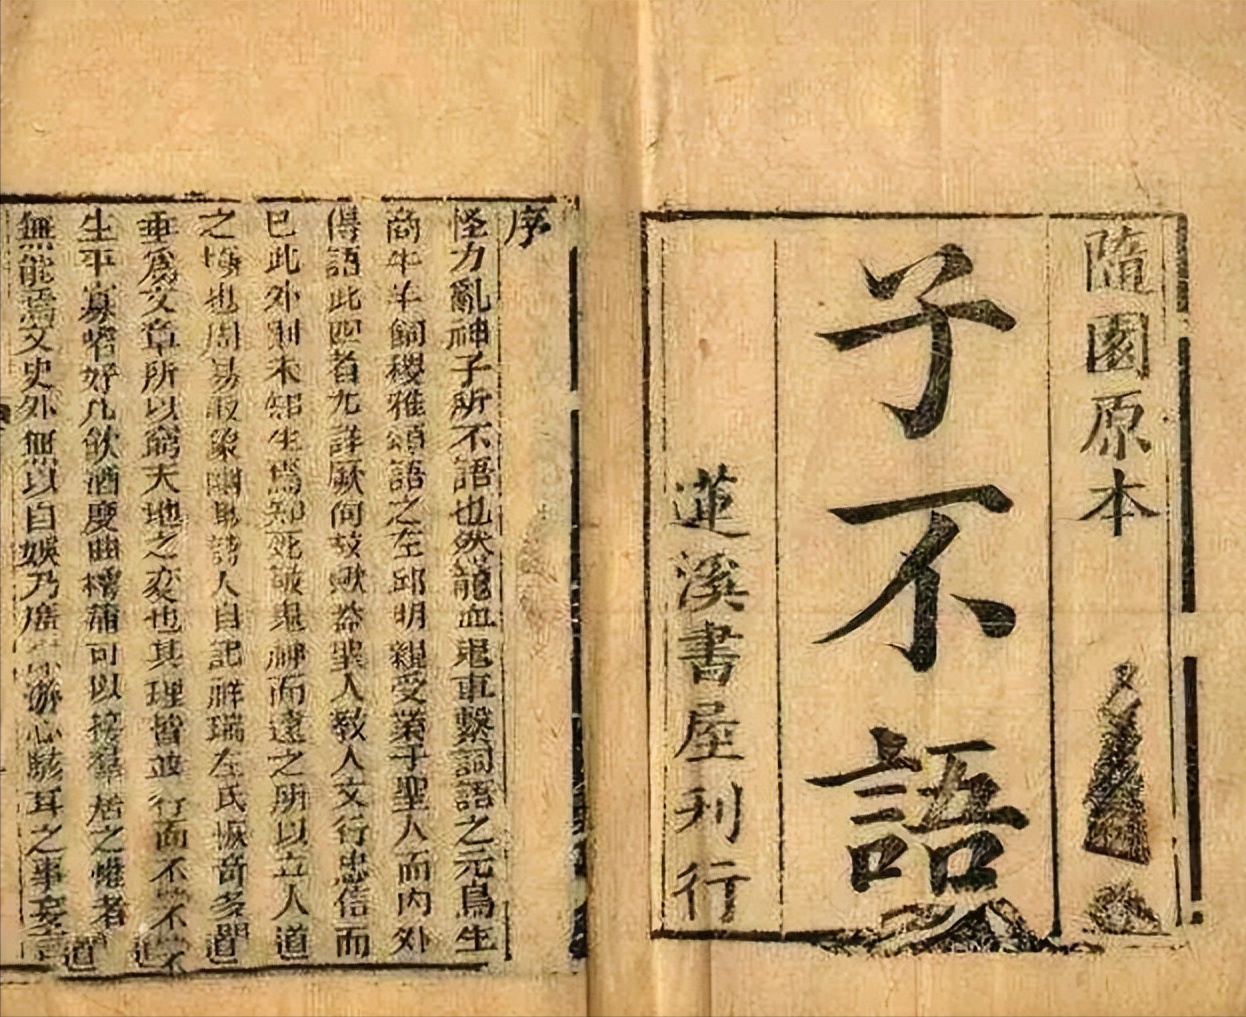 隨園原本
子不語
蓮溪書屋刊行
序
怪力亂神子所不語也然龍血鬼車繫詞語之元鳥生
商牛羊飼稷雅頌語之左邱明親受業于聖人而内外
傳語此四者尤詳厥何故歟葢聖人教人文行忠信而
已此外則未知生焉知死敬鬼神而遠之所以立人道
之也周易取象幽詩人自記祥瑞左氏恢奇多聞道
垂為文章所以窮天地之变也其理皆並行而不不道
生平寡嗜好凡飲酒度曲樗蒲可以接羣居之懽者道
無能焉文史外無以自娛乃廣游心駭耳之事妄言